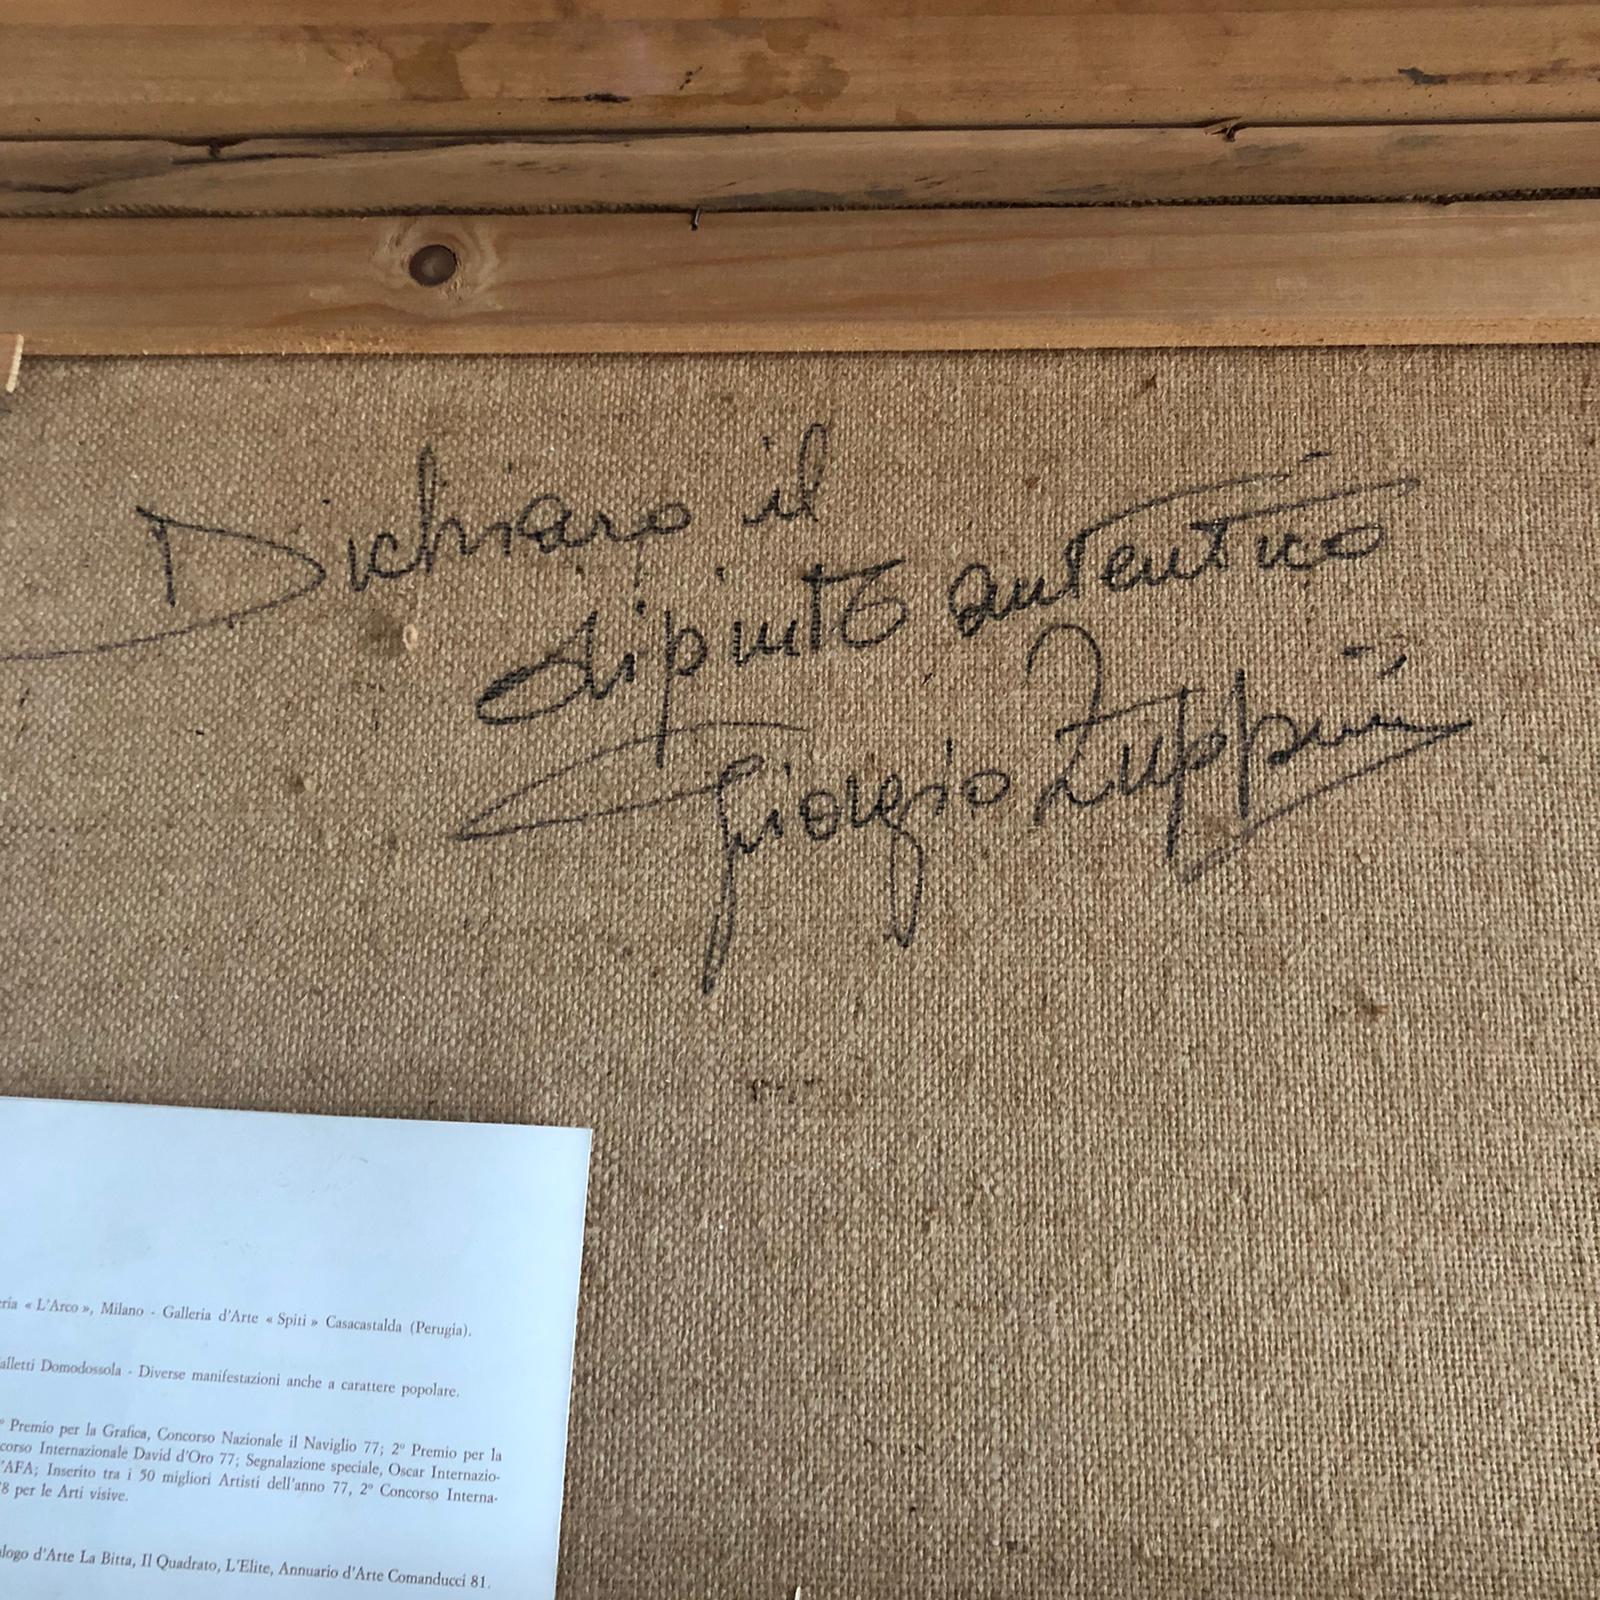 Dichiaro il
dipinto autentico
Giorgio Zuppini
« L'Arco », Milano - Galleria d'Arte « Spiti » Casacastalda (Perugia).
Domodossola - Diverse manifestazioni anche a carattere popolare.
Premio per la Grafica, Concorso Nazionale il Naviglio 77; 2º Premio per la
Internazionale David d'Oro 77; Segnalazione speciale, Oscar Internazio-
Inserito tra i 50 migliori Artisti dell'anno 77, 2º Concorso Interna-
per le Arti visive.
d'Arte La Bitta, Il Quadrato, L'Elite, Annuario d'Arte Comanducci 81.